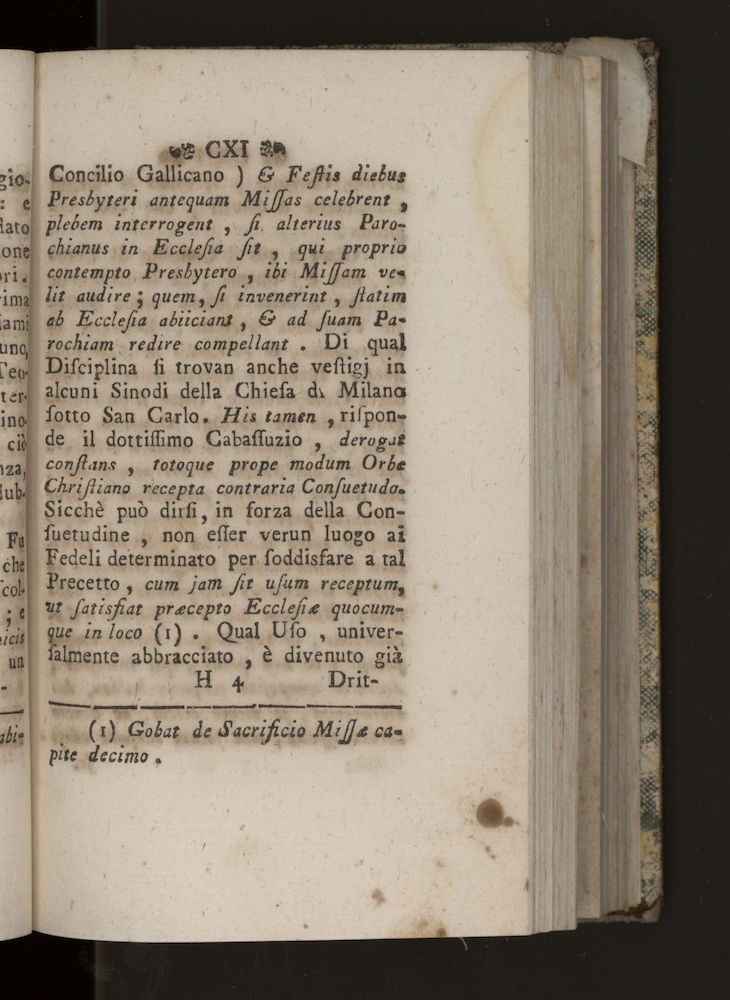 CXI
Concilio Gallicano ) & Feſtis diebus
Presbyteri antequam Miſſas celebrent ,
plebem interrogent , ſi alterius Paro-
chianus in Eccleſia ſit , qui proprio
contempto Presbytero , ibi Miſſam ve-
lit audire ; quem, ſi invenerint , ſtatim
ab Eccleſia abiiciant , & ad ſuam Pa-
rochiam redire compellant . Di qual
Diſciplina ſi trovan anche veſtigj in
alcuni Sinodi della Chieſa di Milano
ſotto San Carlo. His tamen , riſpon-
de il dottiſſimo Cabaſſuzio , derogat
conſtans , totoque prope modum Orbe
Chriſtiano recepta contraria Conſuetudo.
Sicchè può dirſi, in forza della Con-
ſuetudine , non eſſer verun luogo ai
Fedeli determinato per ſoddisfare a tal
Precetto , cum jam ſit uſum receptum,
ut ſatisfiat præcepto Eccleſiæ quocum-
que in loco (1) . Qual Uſo , univer-
ſalmente abbracciato , è divenuto già
H 4 Drit-
(1) Gobat de Sacrificio Miſſæ ca-
pite decimo .